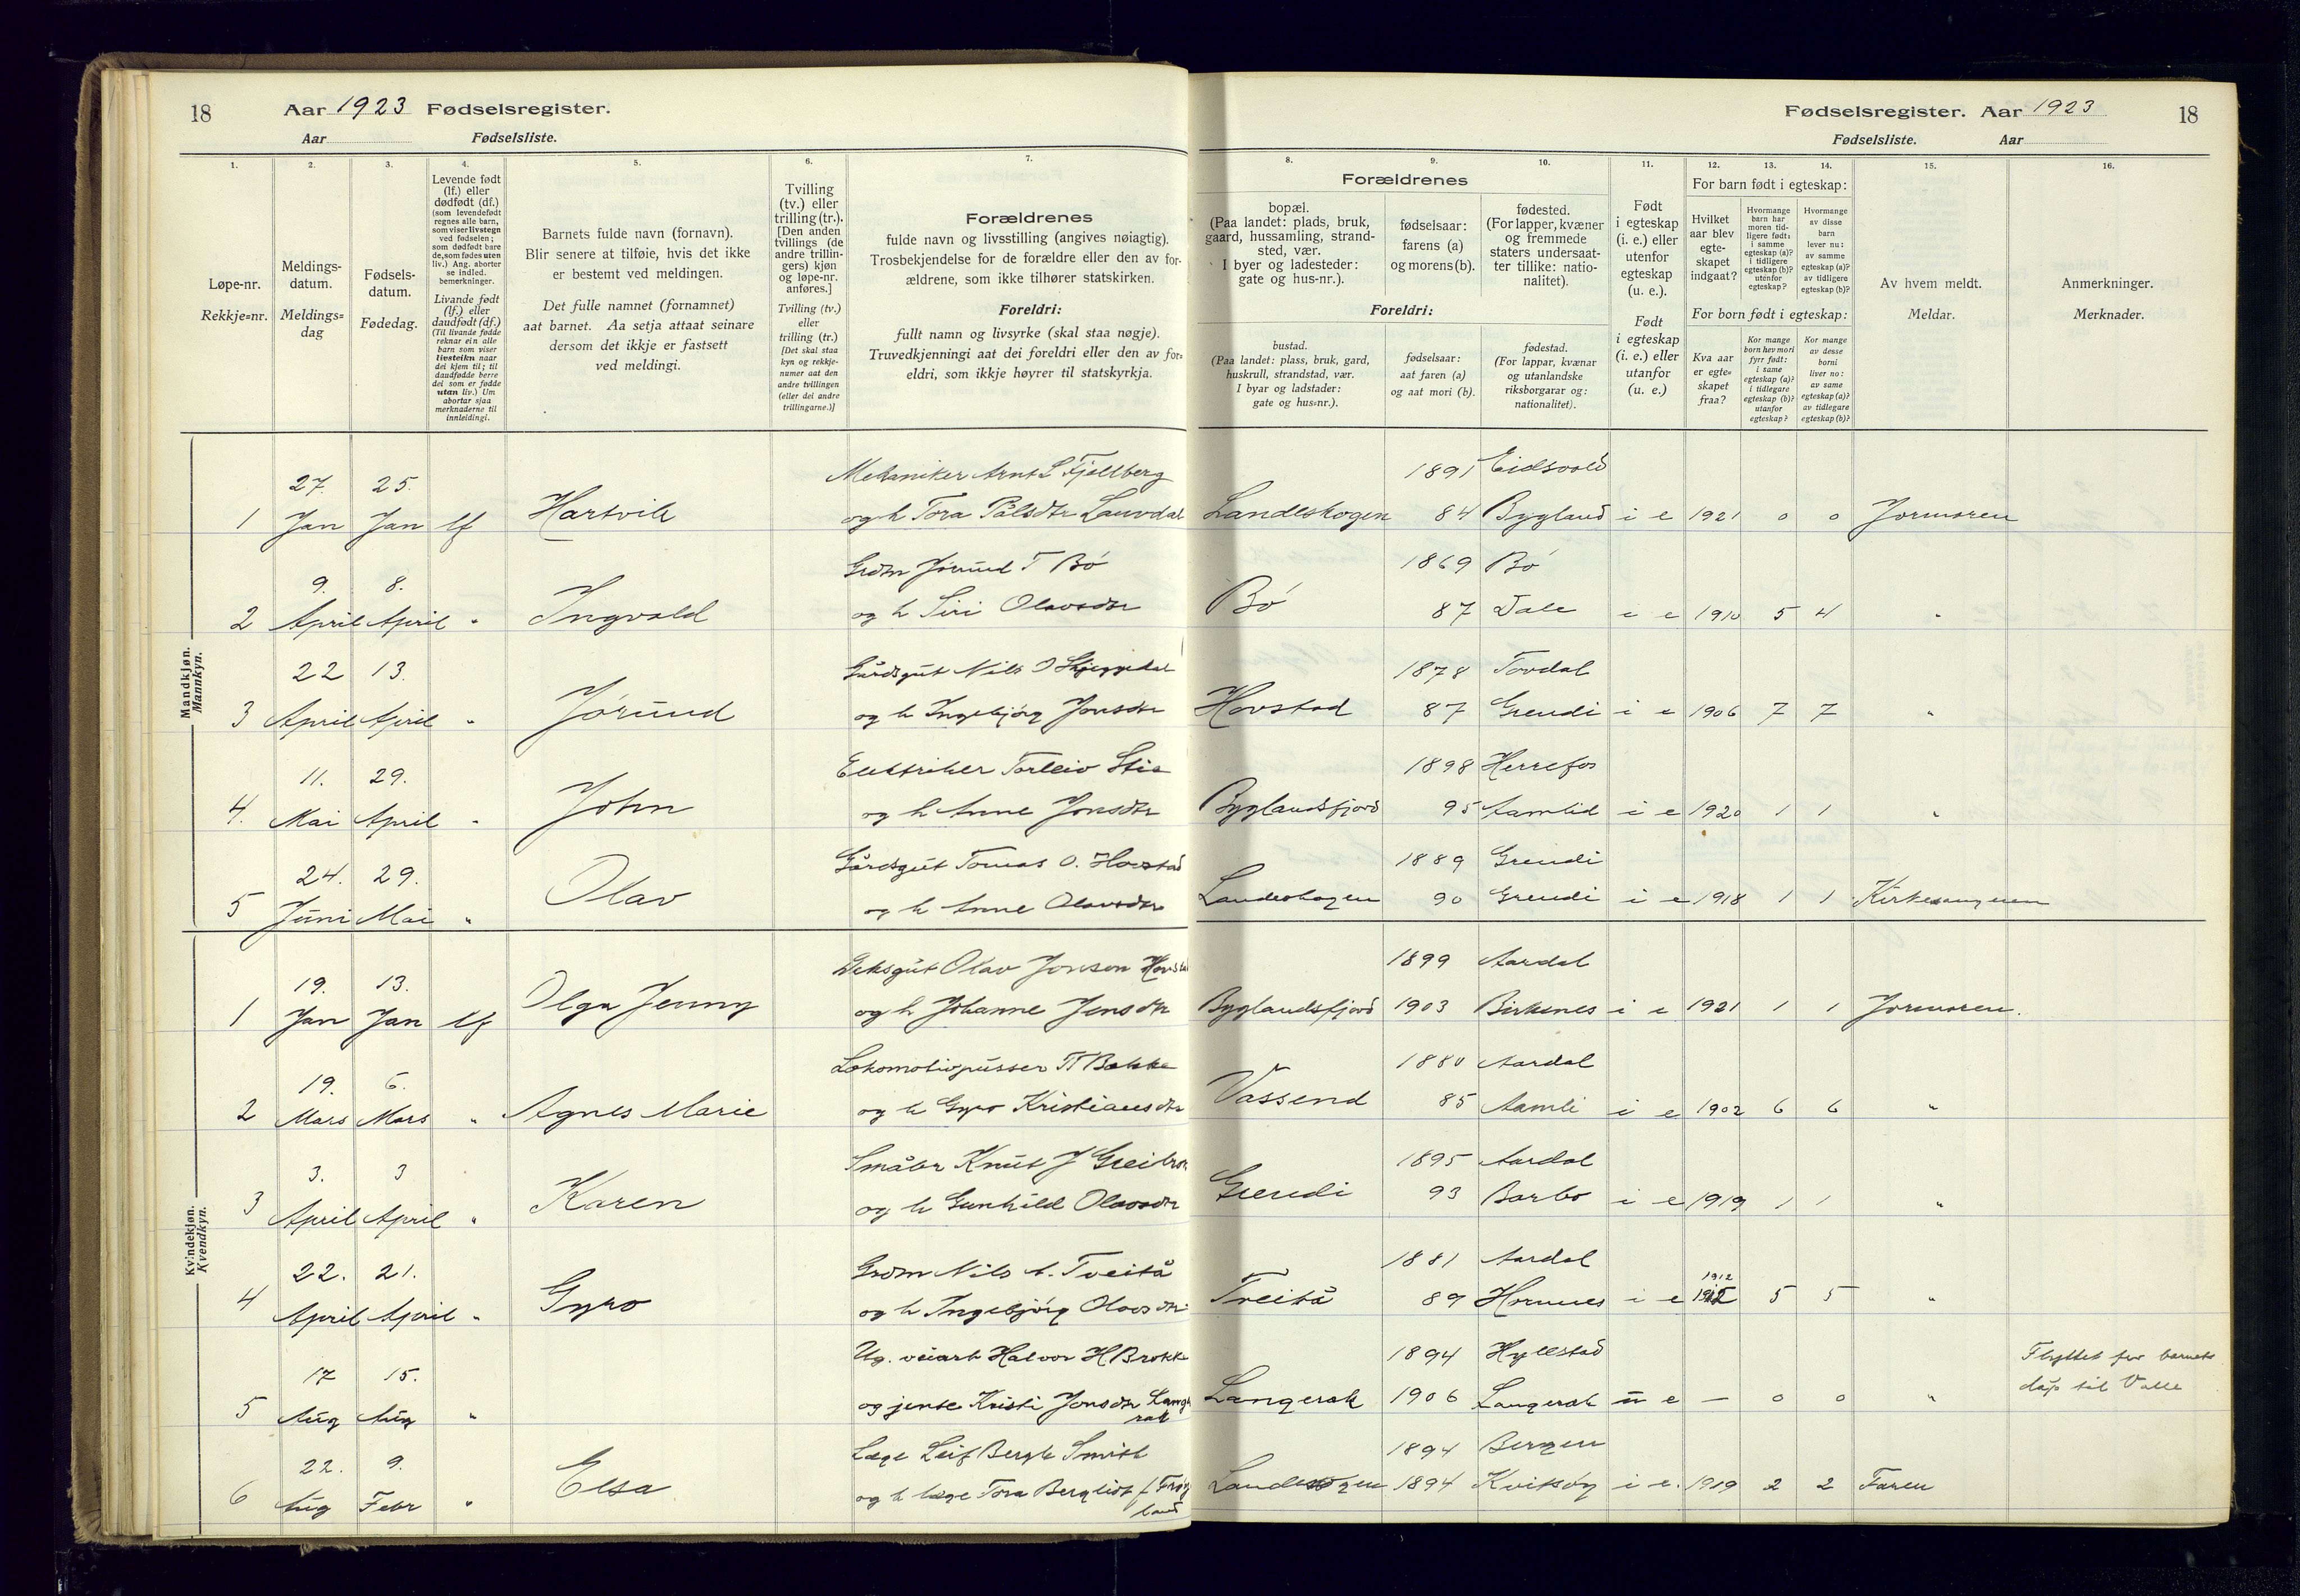 18 Aar 1923 Fødselsregister.
Aar Fødselsliste.
Fødselsregister. Aar 1923 18
Fødselsliste. Aar
1. 2. 3. 4. 5. 6. 7. 8. 9. 10. 11. 12. 13. 14. 15. 16.
Løpe-nr.
Rekkje=nr.
Meldings-
datum.
Meldings=
dag
Fødsels-
datum.
Fødedag.
Levende født
(lf.) eller
dødfødt (df.)
(som levendefødt
regnes alle barn,
som viser livstegn
ved fødselen;
som dødfødt bare
de, som fødes uten
liv.) Ang. aborter
se indled.
bemerkninger.
Livande født
(lf.) eller
daudfødt (df.)
(Til livande fødde
reknar ein alle
barn som viser
livsteikn naar
dei kjem til; til
daudfødde berre
dei som er fødde
utan liv.) Um
abortar sjaa
merknaderne til
innleidingi.
Barnets fulde navn (fornavn).
Blir senere at tilføie, hvis det ikke
er bestemt ved meldingen.
Det fulle namnet (fornamnet)
aat barnet. Aa setja attaat seinare
dersom det ikkje er fastsett
ved meldingi.
Tvilling
(tv.) eller
trilling (tr.).
[Den anden
tvillings (de
andre trillin-
gers) kjøn
og løpe-nr.
anføres.]
Tvilling (tv.)
eller
trilling (tr.)
[Det skal staa
kyn og rekkje-
numer aat den
andre tvillingen
(eller dei andre
trillingarne.)]
Forældrenes
fulde navn og livsstilling (angives nøiagtig).
Trosbekjendelse for de forældre eller den av for-
ældrene, som ikke tilhører statskirken.
Foreldri:
fullt namn og livsyrke (skal staa nøgje).
Truvedkjenningi aat dei foreldri eller den av for=
eldri, som ikkje høyrer til statskyrkja.
Forældrenes
bopæl.
(Paa landet: plads, bruk,
gaard, hussamling, strand-
sted, vær.
I byer og ladesteder:
gate og hus-nr.).
fødselsaar:
farens (a)
og morens (b).
fødested.
(For lapper, kvæner
og fremmede
staters undersaat-
ter tillike: natio-
nalitet).
Foreldri:
bustad.
(Paa landet: plass, bruk, gard,
huskrull, strandstad, vær.
I byar og ladstader:
gate og hus=nr.).
fødselsaar:
aat faren (a)
og aat mori (b).
fødestad.
(For lappar, kvænar
og utanlandske
riksborgarar og:
nationalitet).
Født
i egteskap
(i. e.) eller
utenfor
egteskap
(u. e.).
Født
i egteskap
(i. e.) eller
utanfor
(u. e.)
For barn født i egteskap:
Hvilket
aar blev
egte-
skapet
indgaat?
Hvormange
barn har
moren tid-
ligere født:
i samme
egteskap (a)?
i tidligere
egteskap (b)?
utenfor
egteskap?
Hvormange
av disse
barn
lever nu:
av samme
egteskap (a)?
av tidligere
egteskap (b)?
For born født i egteskap:
Kva aar
er egte=
skapet
fraa?
Kor mange
born hev mori
fyrr født:
i same
egteskap (a)?
i tidlegare
egteskap (b)?
utanfor
egteskap?
Kor mange
av desse
borni
liver no:
av same
egteskap (a)?
av tidlegare
egteskap (b)?
Av hvem meldt.
Meldar.
Anmerkninger.
Merknader.
Mandkjøn.
Mannkyn.
27. 25. Mekaniker Arnt L Fjellberg 1891 Eidsvold
1 Jan Jan lf Hartvik og h Tora Pålsdtr Lauvdal Landeskogen 84 Bygland i e 1921 0 0 Jormoren
9. 8. Grdm Jørund T Bø 1869 Bø
2 April April " Ingvald og h Siri Olavsdtr Bø 87 Dale i e 1910 5 4 "
22 13. Gårdsgut Nils O Skjeggedal 1878 Tovdal
3 April April " Jørund og h Ingebjørg Jonsdtr Hovstad 87 Grendi i e 1906 7 7 "
11. 29. Elektriker Torleiv Stie 1898 Herrefos
4. Mai April " John og h Anne Jonsdtr Byglandsfjord 95 Aamlid i e 1920 1 1 "
24. 29. Gårdsgut Tomas O. Hovstad 1889 Grendi
5 Juni Mai " Olav og h Anne Olavsdtr Landeskogen 90 Grendi i e 1918 1 1 Kirkesangeren
Kvindekjøn.
Kvendkyn.
19. 13. Olav Jonson Hovstad 1899 Aardal
1 Jan Jan lf Olga Jenny og h Johanne Jensdtr Byglandsfjord 1903 Birkenes i e 1921 1 1 Jormoren.
19. 6. Lokomotivpusser T Bakke 1880 Aardal
2 Mars Mars " Agnes Marie og h Gyro Kristiansdtr Vassend 85 Aamli i e 1902 6 6 "
3. 3 Småbr Knut J 1895 Aardal
3 April April " Karen og h Gunhild Olavsdtr Grendi 93 Barbo i e 1919 1 1 "
22. 21. Grdm Nils A. Tveitå 1881 Aardal
1912
4 April April " Gyro og h Ingebjørg Olavsdtr Tveitå 89 Hornnes i e 5 5 "
17 15. Ug. veiarb Halvor H Brokke 1894 Hyllestad Flyttet før barnets
5 Aug Aug " og jente Kristi Jonsdtr Lange Langerak 1906 Langerak u e — 0 0 " dåp til Valle
rak
22. 9. Læge Leif Bergh Smith 1894 Bergen
6 Aug Febr " Elsa og h læge Tora Bergliot f. Frøy Landeskogen 1894 Kvitsøy i e. 1919 2 2 Faren
land